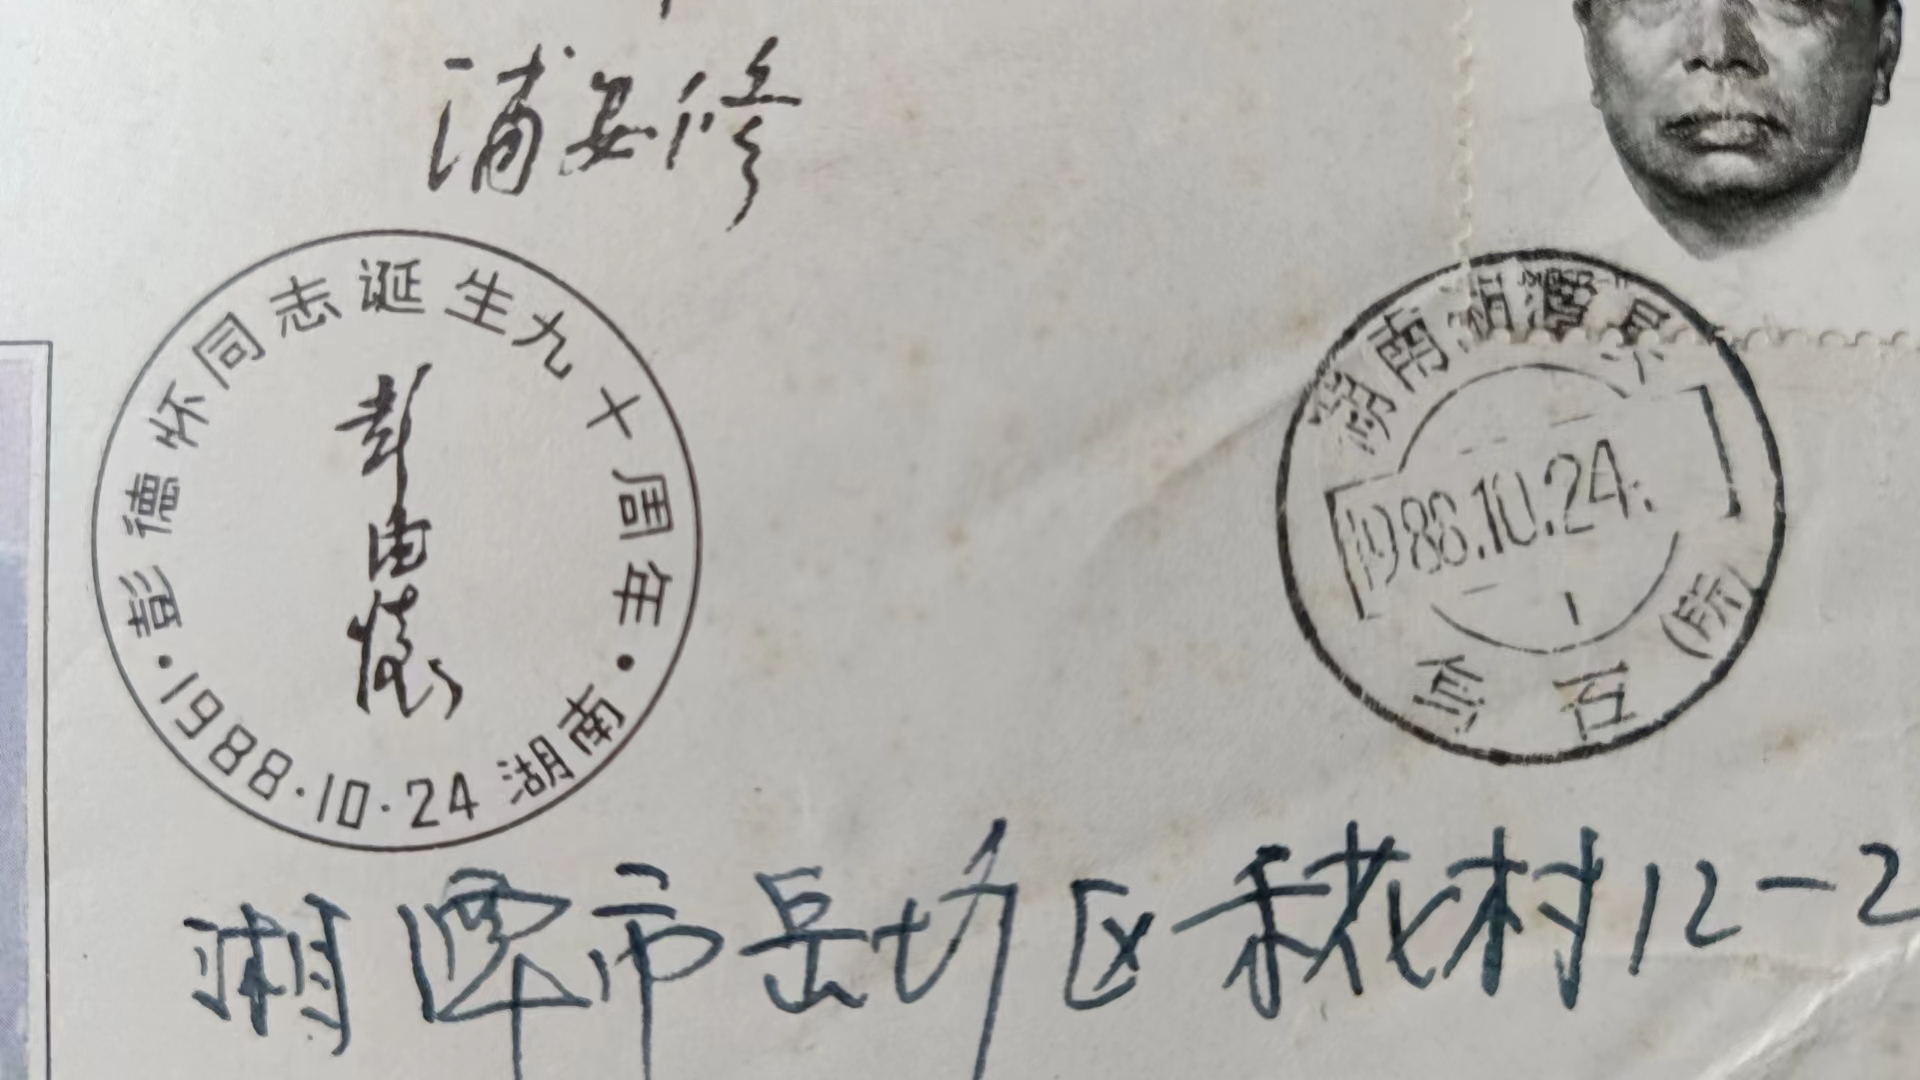 浦安修
彭德怀同志诞生九十周年
彭德怀
·1988·10·24湖南·
湖南湘潭县
1988.10.24.
1
乌石(所)
湘潭市岳塘区禾花村12-2